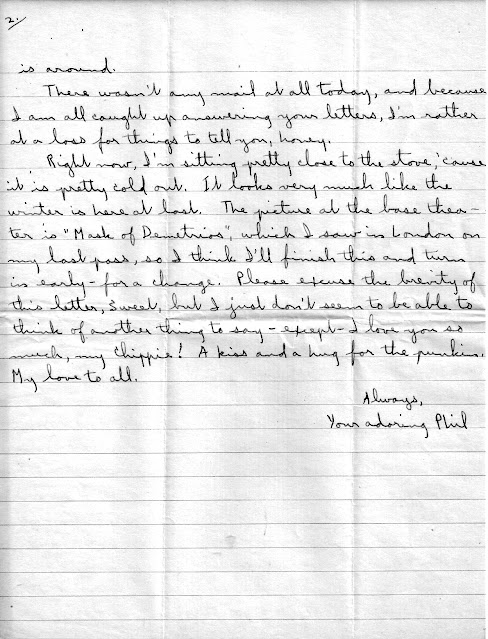 2.
is around.
There wasn't any mail at all today, and because
I am all caught up answering your letters, I'm rather
at a loss for things to tell you, honey.
Right now, I'm sitting pretty close to the stove, 'cause
it is pretty cold out. It looks very much like the
winter is here at last. The picture at the base thea-
ter is "Mask of Demetrios", which I saw in London on
my last pass, so I think I'll finish this and turn
in early - for a change. Please excuse the brevity of
this letter, Sweet, but I just don't seem to be able to
think of another thing to say - except - I love you so
much, my Chippie! A kiss and a hug for the punkin.
My love to all.
Always,
Your adoring Phil